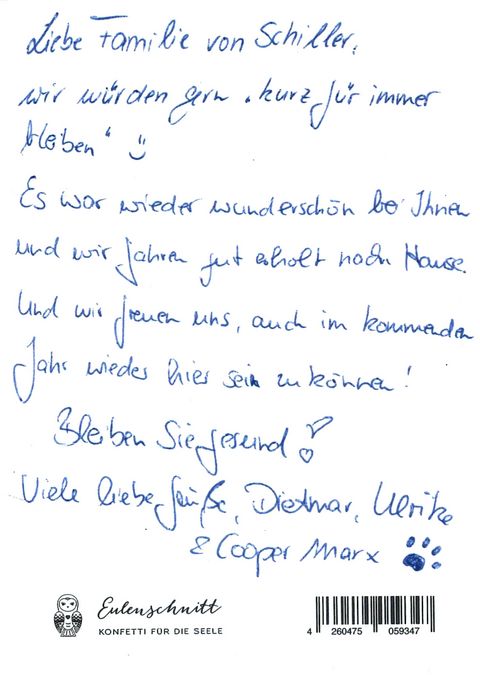 Liebe Familie von Schiller,
wir würden gern „kurz für immer
bleiben“ ☺
Es war wieder wunderschön bei Ihnen
und wir fahren gut erholt nach Hause.
Und wir freuen uns, auch im kommenden
Jahr wieder hier sein zu können!
Bleiben Sie gesund!
Viele liebe Grüße, Dietmar, Ulrike
& Cooper Marx
Eulenschnitt
KONFETTI FÜR DIE SEELE
4 260475 059347